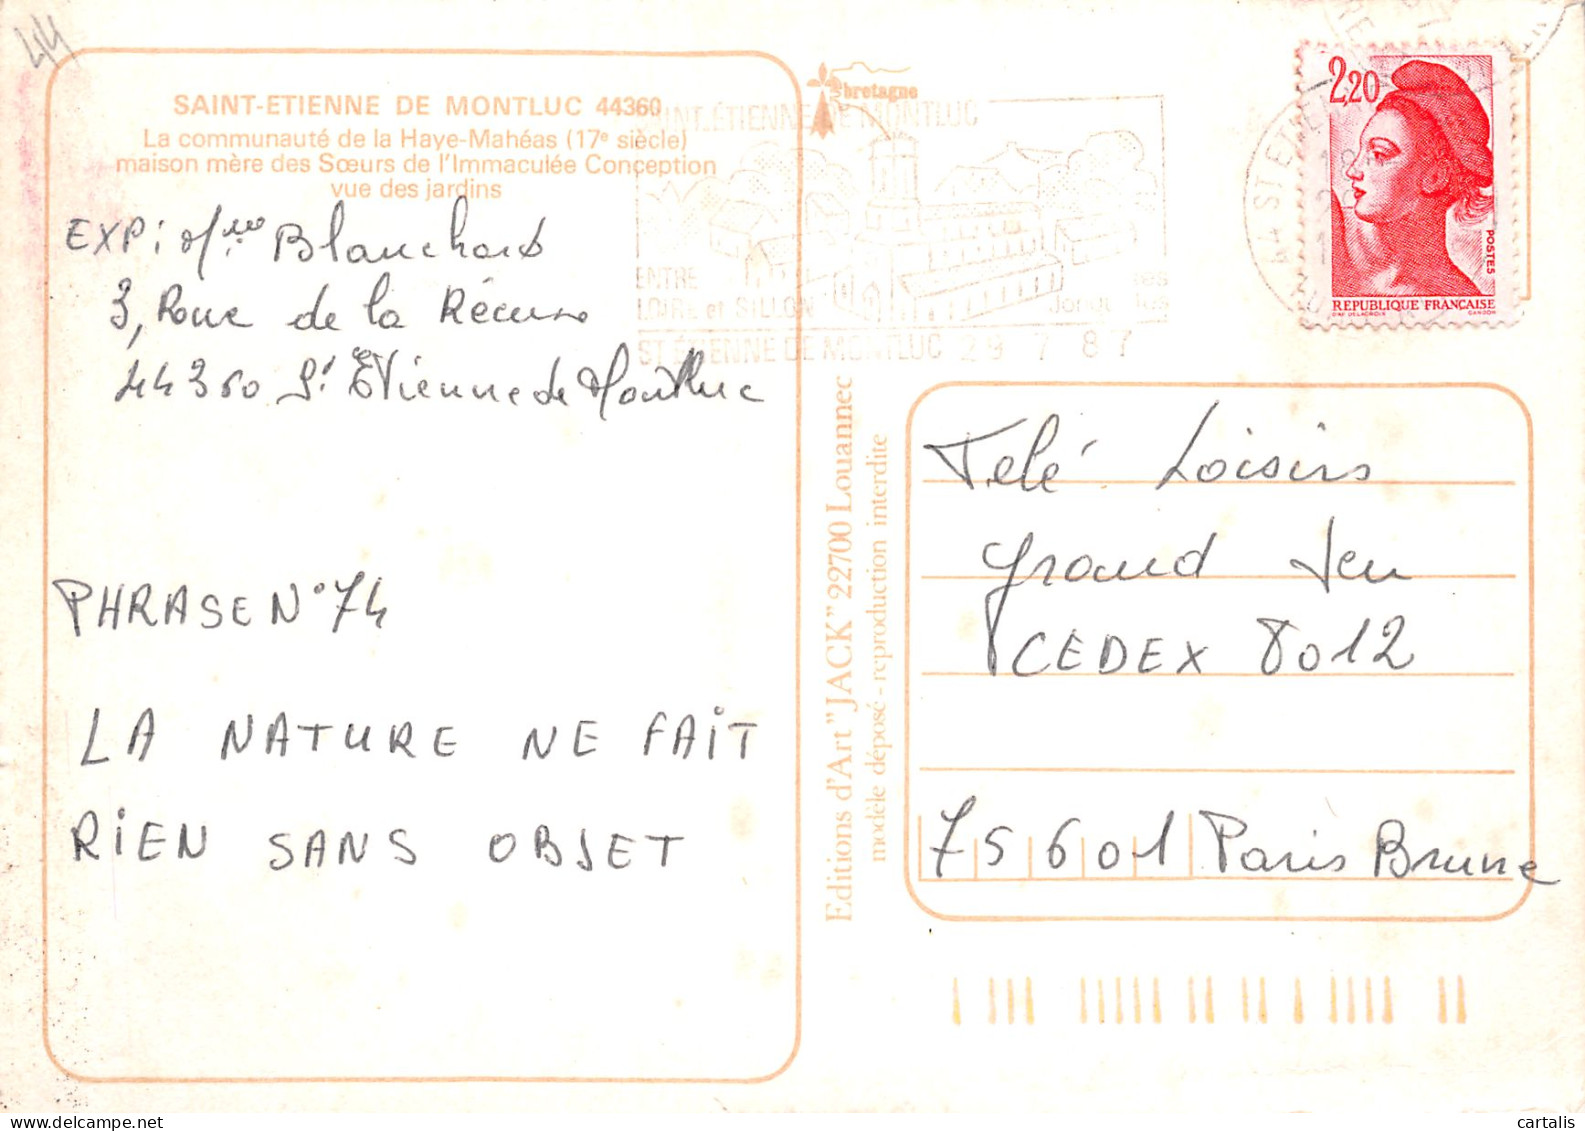 44
SAINT-ETIENNE DE MONTLUC 44360
La communauté de la Haye-Mahéas (17e siècle)
maison mère des Sœurs de l'Immaculée Conception
vue des jardins
EXP: Blanchard
3, Rue de la
44360 St Etienne de Montluc
PHRASE N°74
LA NATURE NE FAIT
RIEN SANS OBJET
bretagne
SAINT-ÉTIENNE DE MONTLUC
ENTRE
LOIRE et SILLON
ST ÉTIENNE DE MONTLUC 29 7 87
Editions d'Art "JACK" 22700 Louannec
modèle déposé - reproduction interdite
44 ST ETIE
2,20
POSTES
REPUBLIQUE FRANÇAISE
D'AP. DELACROIX GANDON
Télé Loisirs
grand Jeu
CEDEX 8012
75601 Paris Brune
cartalis